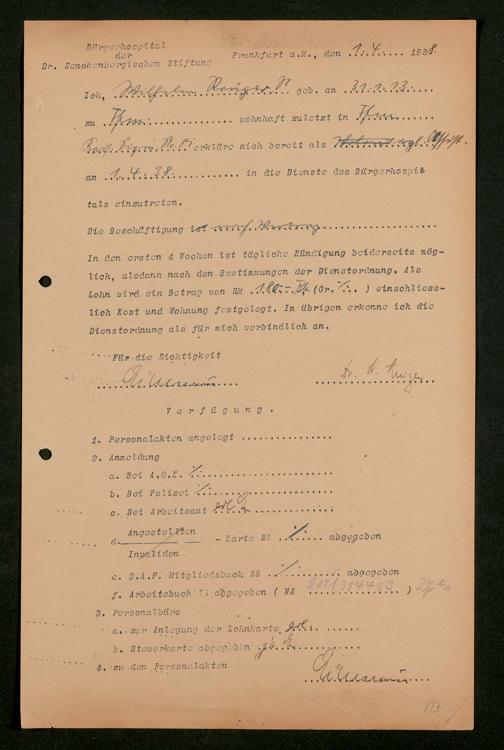 Bürgerhospital
der
Dr. Senckenbergischen Stiftung
Frankfurt a.M., den 1.4. 1938.
Ich, Wilhelm geb. am 31.1.13
zu Ffm wohnhaft zuletzt in Ffm
erkläre mich bereit als
am 1.4.38. in die Dienste des Bürgerhospi=
tals einzutreten.
Die Beschäftigung ist
In den ersten 4 Wochen ist tägliche Kündigung beiderseits mög-
lich, alsdann nach den Bestimmungen der Dienstordnung. Als
Lohn wird ein Betrag von RM 180.- (Gr. ./. ) einschliess-
lich Kost und Wohnung festgelegt. Im übrigen erkenne ich die
Dienstordnung als für mich verbindlich an.
Für die Richtigkeit
Dr. W.
Verfügung.
1. Personalakten angelegt
2. Anmeldung
a. Bei A.O.K. ./.
b. Bei Polizei ./.
c. Bei Arbeitsamt
d. Angestellten
Invaliden
- Karte No ./. abgegeben
e. D.A.F. Mitgliedsbuch No ./. abgegeben
f. Arbeitsbuch abgegeben ( No )
3. Personalbüro
a. zur Anlegung der Lohnkarte
b. Steuerkarte abgegeben
4. zu den Personalakten